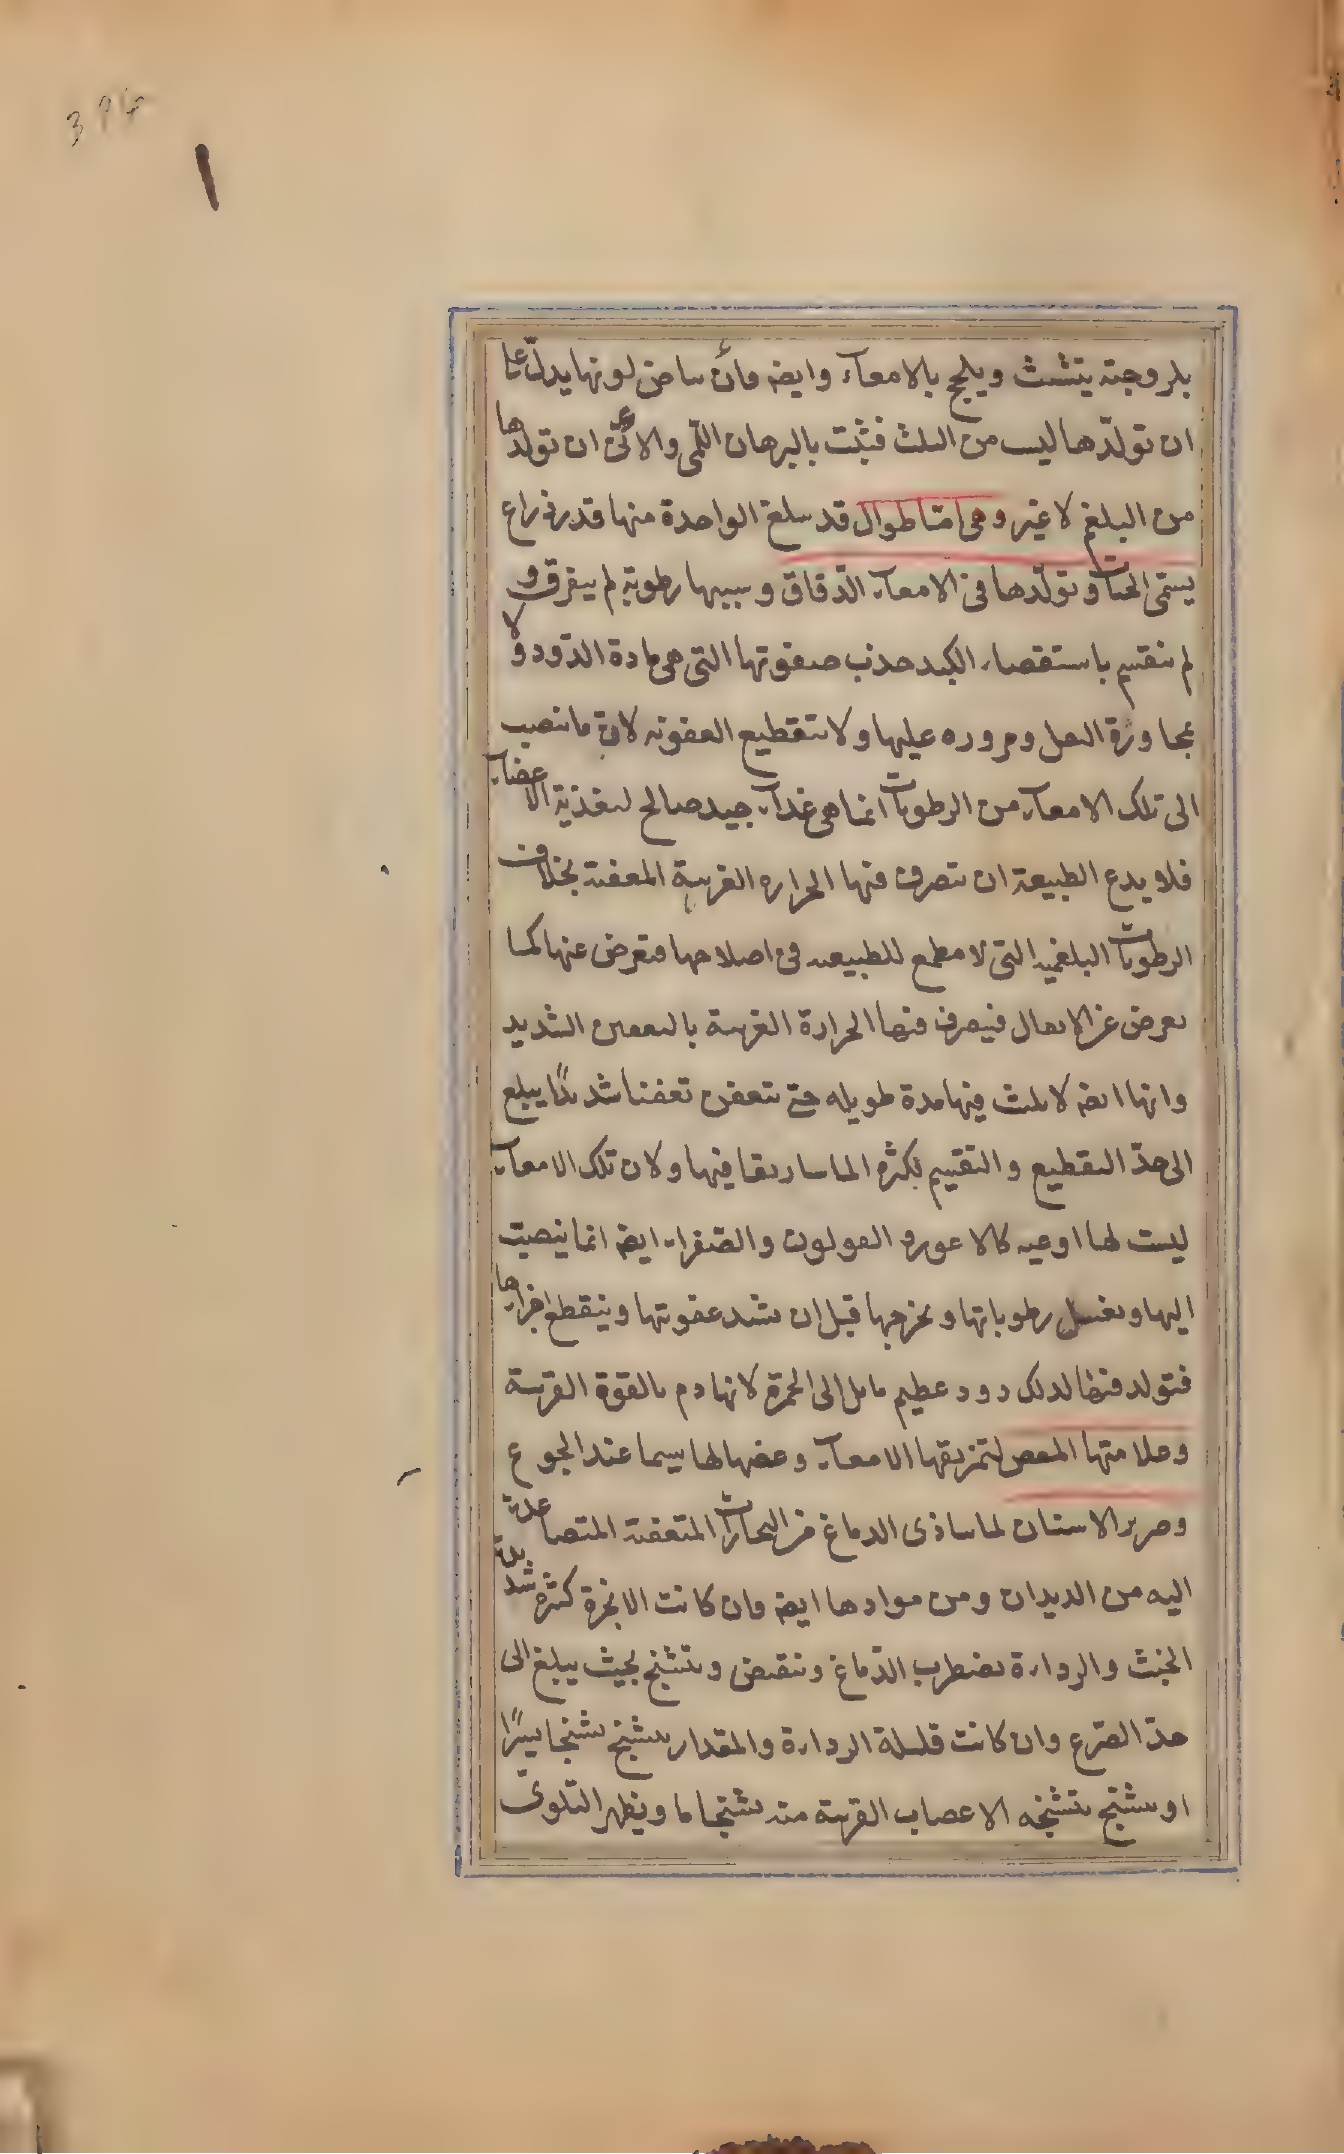 394
بلزوجته يتشبث ويلحج بالامعاء وايضه فان بياض لونها يدل على
ان تولدها ليس من الثلث فثبت بالبرهان اللمى والانى ان تولدها
من البلغم لا غير وهى اما طوال قد يبلغ الواحدة منها قدر ذراع
يسمى الحيات وتولدها فى الامعاء الدقاق وسببها رطوبة لم يتفرق و
لم ينقسم باستقصاء الكبد جذب صفوتها التى هى مادة الدود ولا
بمجاورة الثفل ومروره عليها ولا بتقطيع العفونه لان ما ينصب
الى تلك الامعاء من الرطوبات انما هى غذاء جيد صالح لتغذية الاعضاء
فلا يدع الطبيعة ان يتصرف فيها الحراره الغريبة المعفنة بخلاف
الرطوبات البلغميه التى لا مطمع للطبيعه فى اصلاحها فتعرض عنها كما
يعرض عن الاثفال فيتصرف فيها الحرارة الغريبة بالتعفين الشديد
وانها ايضه لا يلبث فيها مدة طويله حتى يتعفن تعفنا شديدا يبلغ
الى حد التقطيع والتقسيم لكثرة الماساريقا فيها ولان تلك الامعاء
ليست لها اوعيه كالاعور و القولون والصفراء ايضه انما ينصب
اليها ويغسل رطوباتها ويخرجها قبل ان يشد عفونتها وينقطع اجزاءها
فيتولد فيها لذلك دود عظيم مايل الى الحمرة لانها دم بالقوة القريبة
وعلامتها المغص لتمزيقها الامعاء وعضها لها سيما عند الجوع
وصرير الاسنان لما يتاذى الدماغ من البخارات المتعفنة المتصاعدة
اليه من الديدان ومن موادها ايضه فان كانت الابخرة كثيرة شديدة
الخبث والرداءة يضطرب الدماغ وينقبض ويتشنج بحيث يبلغ الى
حد الصرع وان كانت قليلة الرداءة والمقدار يتشنج تشنجا يسيرا
او يتشنج بتشنجه الاعصاب القريبة منه تشنجا ما ويظهر التلوى